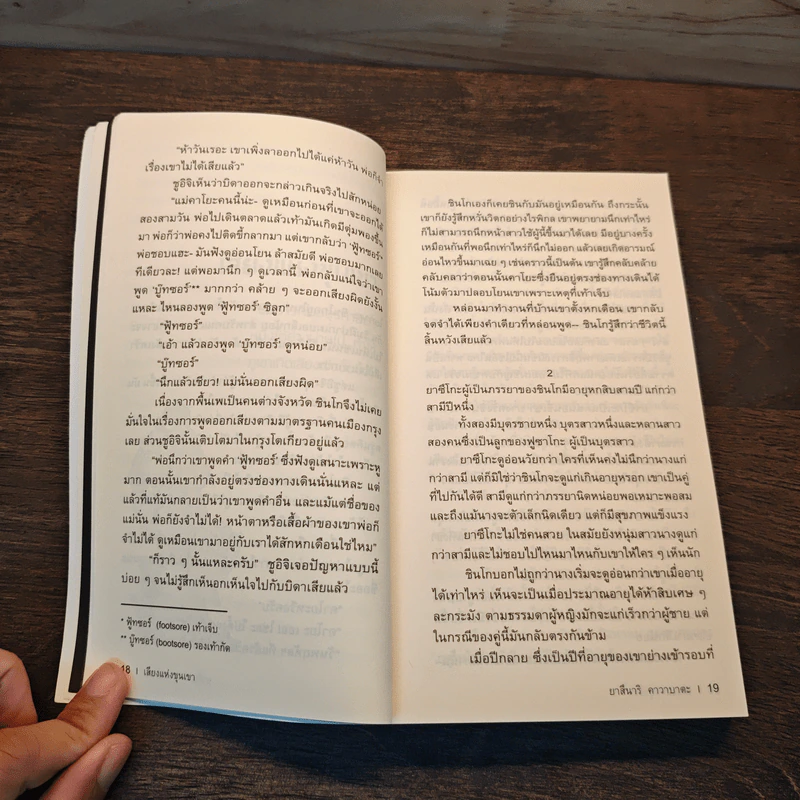 "ห้าวันเรอะ เขาเพิ่งลาออกไปได้แค่ห้าวัน พ่อก็จำ
เรื่องเขาไม่ได้เสียแล้ว"
ชูอิจิเห็นว่าบิดาออกจะกล่าวเกินจริงไปสักหน่อย
"แม่คาโยะคนนี้น่ะ- ดูเหมือนก่อนที่เขาจะออกได้
สองสามวัน พ่อไปเดินตลาดแล้วเท้ามันเกิดมีตุ่มพองขึ้น
มา พ่อก็ว่าพ่อคงไปติดขี้กลากมา แต่เขากลับว่า 'ฟู้ทซอร์*'
พ่อชอบแฮะ- มันฟังดูอ่อนโยน ล้าสมัยดี พ่อชอบมากเลย
ทีเดียวละ! แต่พอมานึก ๆ ดูเวลานี้ พ่อกลับแน่ใจว่าเขา
พูด 'บู๊ทซอร์'** มากกว่า คล้าย ๆ จะออกเสียงผิดไปยังงั้น
แหละ ไหนลองพูด 'ฟู้ทซอร์' ซิลูก"
"ฟู้ทซอร์"
"เอ้า แล้วลองพูด 'บู๊ทซอร์' ดูหน่อย"
"บู๊ทซอร์"
"นึกแล้วเชียว! แม่นั่นออกเสียงผิด"
เนื่องจากพื้นเพเป็นคนต่างจังหวัด ชินโกจึงไม่เคย
มั่นใจในเรื่องการพูดออกเสียงตามมาตรฐานคนเมืองกรุง
เลย ส่วนชูอิจินั้นเติบโตมาในกรุงโตเกียวอยู่แล้ว
"พ่อนึกว่าเขาพูดคำ 'ฟู้ทซอร์' ซึ่งฟังดูเสนาะเพราะหู
มาก ตอนนั้นเขากำลังอยู่ตรงช่องทางเดินนั่นแหละ แต่
แล้วที่แท้มันกลายเป็นว่าเขาพูดคำอื่น และแม้แต่ชื่อของ
แม่นั่น พ่อก็ยังจำไม่ได้! หน้าตาหรือเสื้อผ้าของเขาพ่อก็
จำไม่ได้ ดูเหมือนเขามาอยู่กับเราได้สักหกเดือนใช่ไหม"
"ก็ราว ๆ นั้นแหละครับ" ชูอิจิเจอปัญหาแบบนี้
บ่อย ๆ จนไม่รู้สึกเห็นอกเห็นใจไปกับบิดาเสียแล้ว
* ฟู้ทซอร์ (footsore) เท้าเจ็บ
** บู๊ทซอร์ (bootsore) รองเท้ากัด
18 | เสียงแห่งขุนเขา
ชินโกเองก็เคยชินกับมันอยู่เหมือนกัน ถึงกระนั้น
เขาก็ยังรู้สึกหวั่นวิตกอย่างไรพิกล เขาพยายามนึกเท่าไหร่
ก็ไม่สามารถนึกหน้าสาวใช้ผู้นี้ขึ้นมาได้เลย มีอยู่บางครั้ง
เหมือนกันที่พอนึกเท่าไหร่ก็นึกไม่ออก แล้วเลยเกิดอารมณ์
อ่อนไหวขึ้นมาเฉย ๆ เช่นคราวนี้เป็นต้น เขารู้สึกคล้ายคล้าย
คลับคลาว่าตอนนั้นคาโยะซึ่งยืนอยู่ตรงช่องทางเดินได้
โน้มตัวมาปลอบโยนเขาเพราะเหตุที่เท้าเจ็บ
หล่อนมาทำงานที่บ้านเขาตั้งหกเดือน เขากลับ
จดจำได้เพียงคำเดียวที่หล่อนพูด-- ชินโกรู้สึกว่าชีวิตนี้
สิ้นหวังเสียแล้ว
2
ยาซึโกะผู้เป็นภรรยาของชินโกมีอายุหกสิบสามปี แก่กว่า
สามีปีหนึ่ง
ทั้งสองมีบุตรชายหนึ่ง บุตรสาวหนึ่งและหลานสาว
สองคนซึ่งเป็นลูกของฟูซาโกะ ผู้เป็นบุตรสาว
ยาซึโกะดูอ่อนวัยกว่า ใครที่เห็นคงไม่นึกว่านางแก่
กว่าสามี แต่ก็มิใช่ว่าชินโกจะดูแก่เกินอายุหรอก เขาเป็นคู่
ที่ไปกันได้ดี สามีดูแก่กว่าภรรยานิดหน่อยพอเหมาะพอสม
และถึงแม้นางจะตัวเล็กนิดเดียว แต่ก็มีสุขภาพแข็งแรง
ยาซึโกะไม่ใช่คนสวย ในสมัยยังหนุ่มสาวนางดูแก่
กว่าสามีและไม่ชอบไปไหนมาไหนกับเขาให้ใคร ๆ เห็นนัก
ชินโกบอกไม่ถูกว่านางเริ่มจะดูอ่อนกว่าเขาเมื่ออายุ
ได้เท่าไหร่ เห็นจะเป็นเมื่อประมาณอายุได้ห้าสิบเศษ ๆ
ละกระมัง ตามธรรมดาผู้หญิงมักจะแก่เร็วกว่าผู้ชาย แต่
ในกรณีของคู่นี้มันกลับตรงกันข้าม
เมื่อปีกลาย ซึ่งเป็นปีที่อายุของเขาย่างเข้ารอบที่
ยาสึนาริ คาวาบาตะ | 19